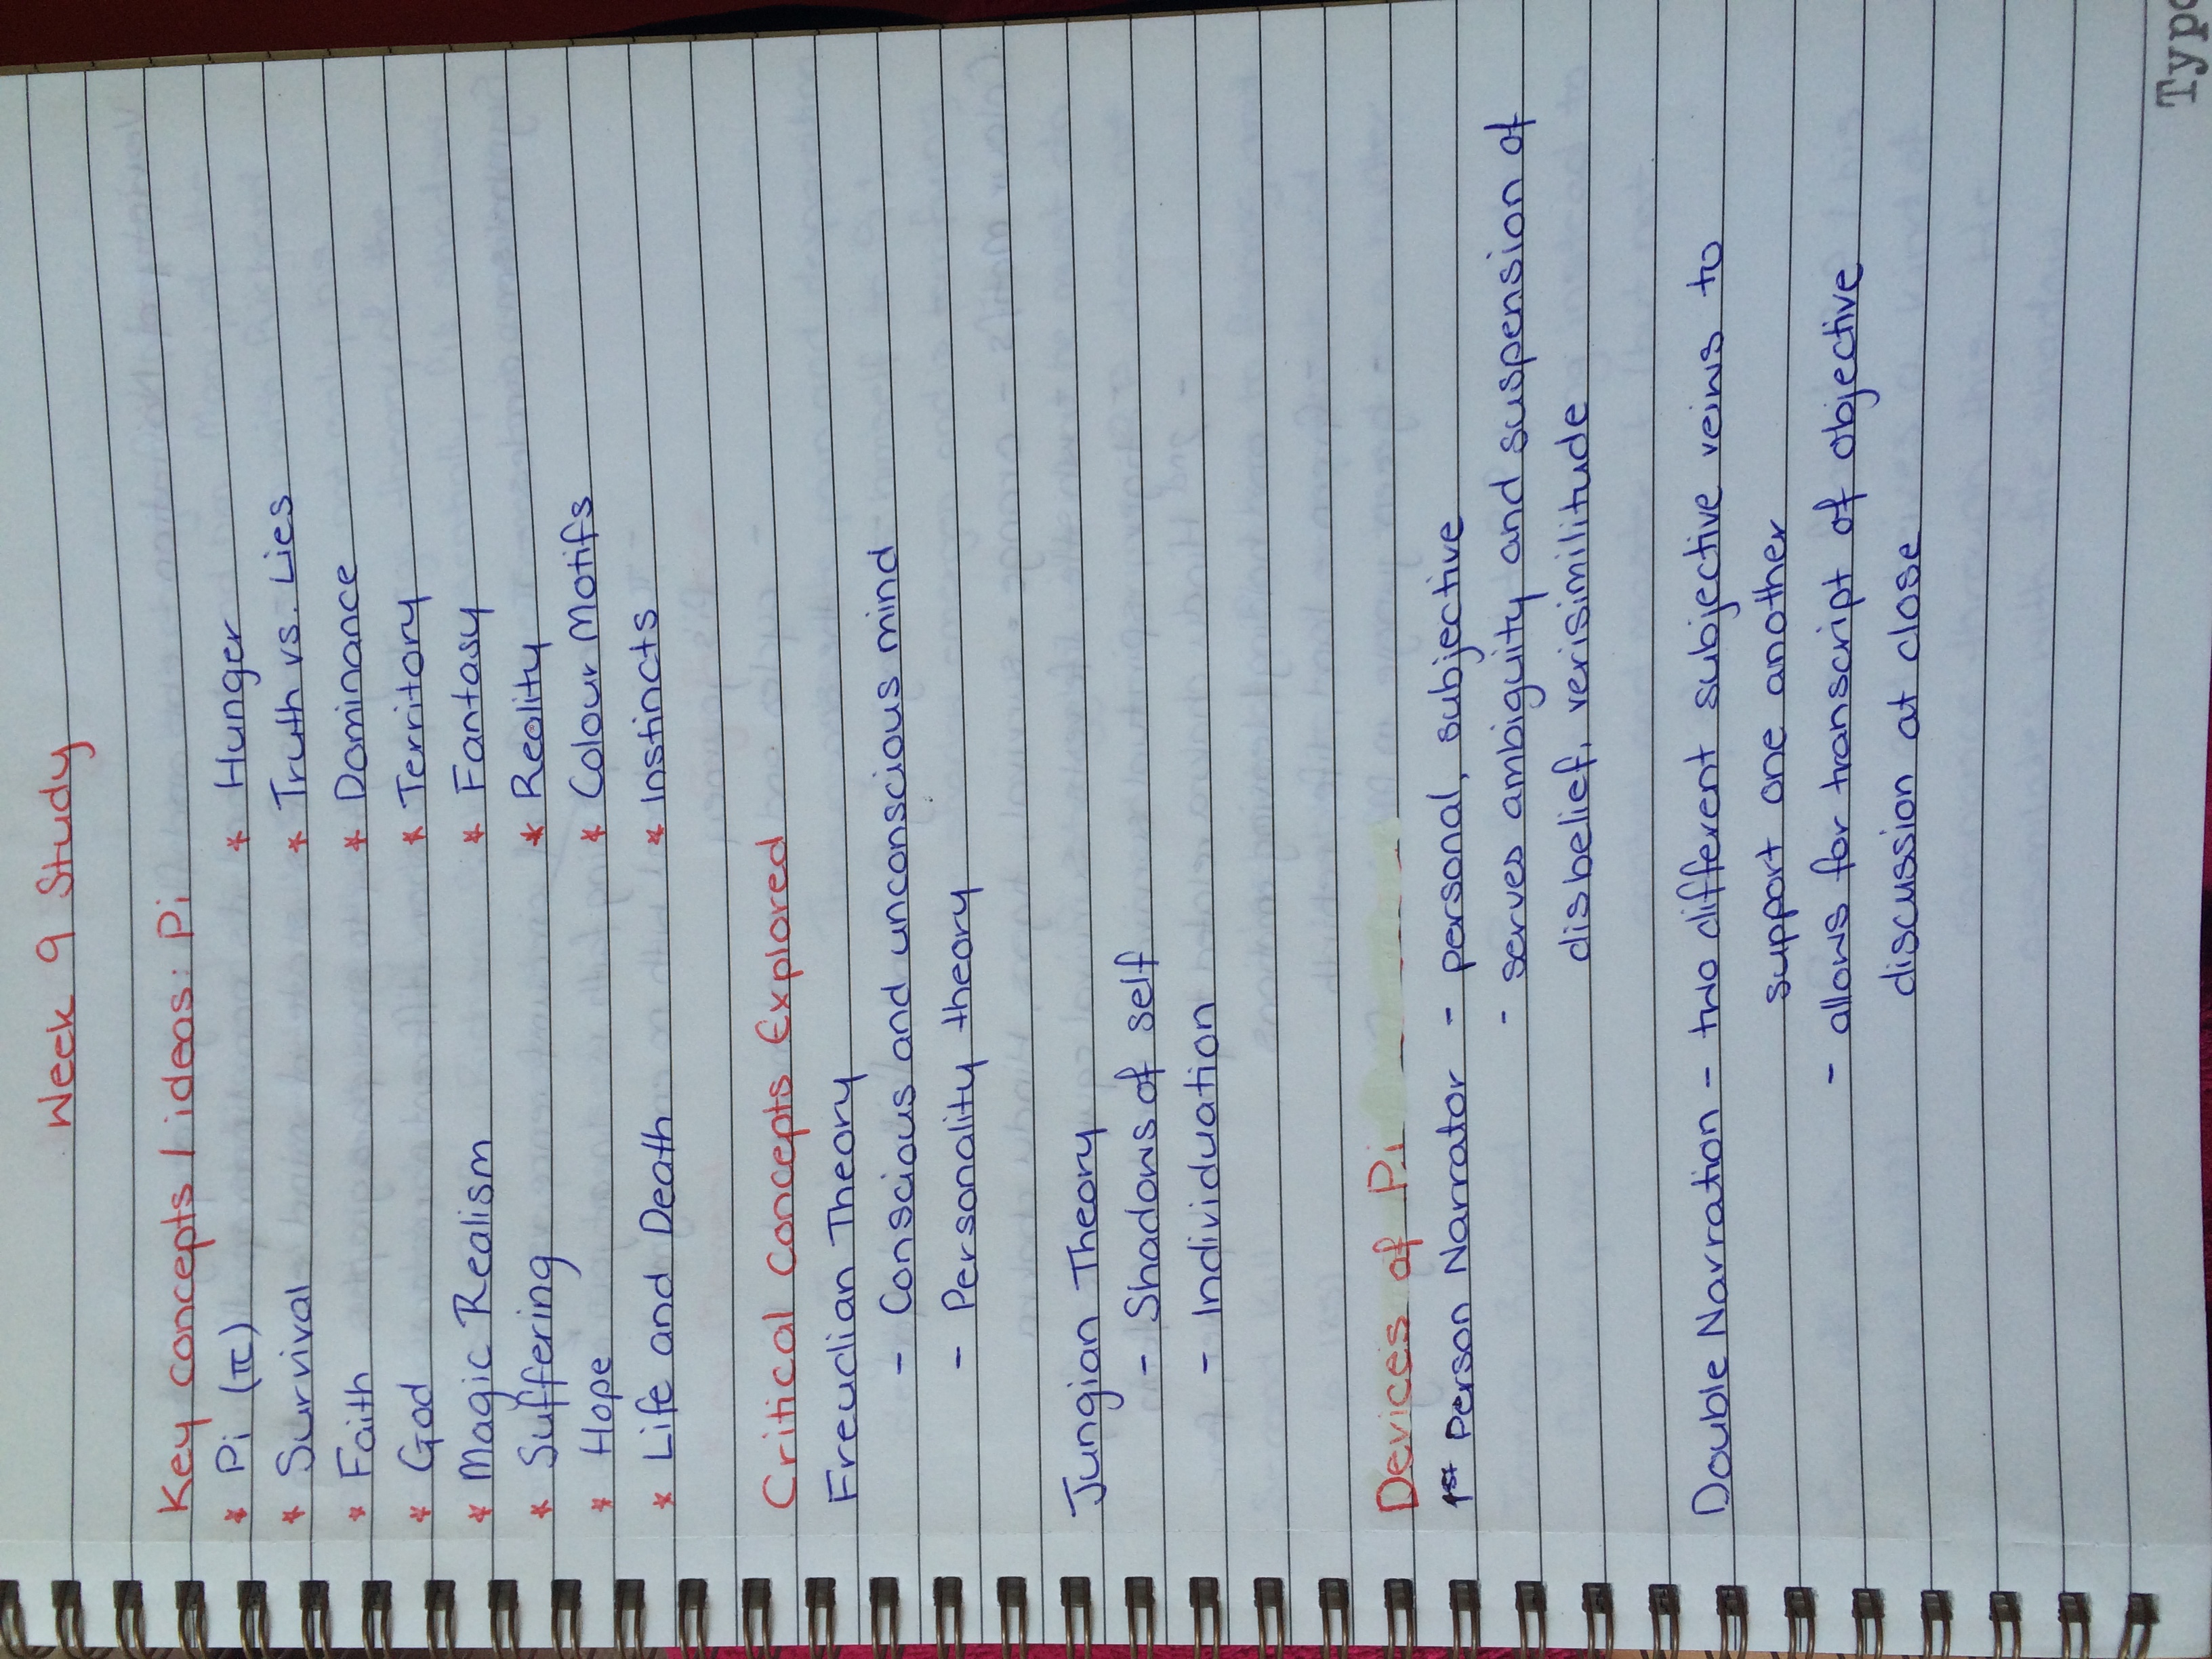 Week 9 Study
Key concepts / ideas: Pi
* Pi (π) * Hunger
* Survival * Truth vs. Lies
* Faith * Dominance
* God * Territory
* Magic Realism * Fantasy
* Suffering * Reality
* Hope * Colour Motifs
* Life and Death * Instincts
Critical Concepts Explored
Freudian Theory
- Conscious and unconscious mind
- Personality theory
Jungian Theory
- Shadows of self
- Individuation
Devices of Pi
1st Person Narrator - personal, subjective
- serves ambiguity and suspension of
disbelief, verisimilitude
Double Narration - two different subjective veins to
support one another
- allows for transcript of objective
discussion at close